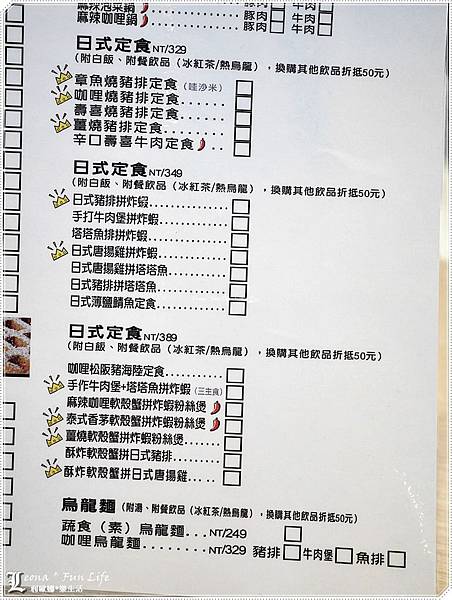 麻辣泡菜鍋 豚肉 牛肉
麻辣咖哩鍋 豚肉 牛肉
日式定食 NT/329
(附白飯、附餐飲品（冰紅茶/熱烏龍），換購其他飲品折抵50元)
章魚燒豬排定食（哇沙米）
咖哩燒豬排定食......
壽喜燒豬排定食......
薑燒豬排定食........
辛口壽喜牛肉定食..
日式定食 NT/349
(附白飯、附餐飲品（冰紅茶/熱烏龍），換購其他飲品折抵50元)
日式豬排拼炸蝦..............
手打牛肉堡拼炸蝦...........
塔塔魚排拼炸蝦..............
日式唐揚雞拼炸蝦...........
日式唐揚雞拼塔塔魚........
日式豬排拼塔塔魚...........
日式薄鹽鯖魚定食...........
日式定食 NT/389
(附白飯、附餐飲品（冰紅茶/熱烏龍），換購其他飲品折抵50元)
咖哩松阪豬海陸定食.......
手作牛肉堡+塔塔魚拼炸蝦（三主食）
麻辣咖哩軟殼蟹拼炸蝦粉絲煲
泰式香茅軟殼蟹拼炸蝦粉絲煲
薑燒軟殼蟹拼炸蝦粉絲煲......
酥炸軟殼蟹拼日式豬排........
酥炸軟殼蟹拼日式唐揚雞...
烏龍麵 (附湯、附餐飲品（冰紅茶/熱烏龍），換購其他飲品折抵50元)
蔬食（素）烏龍麵...NT/249
咖哩烏龍麵.........NT/329 豬排 牛肉堡 魚排
Leona * Fun Life